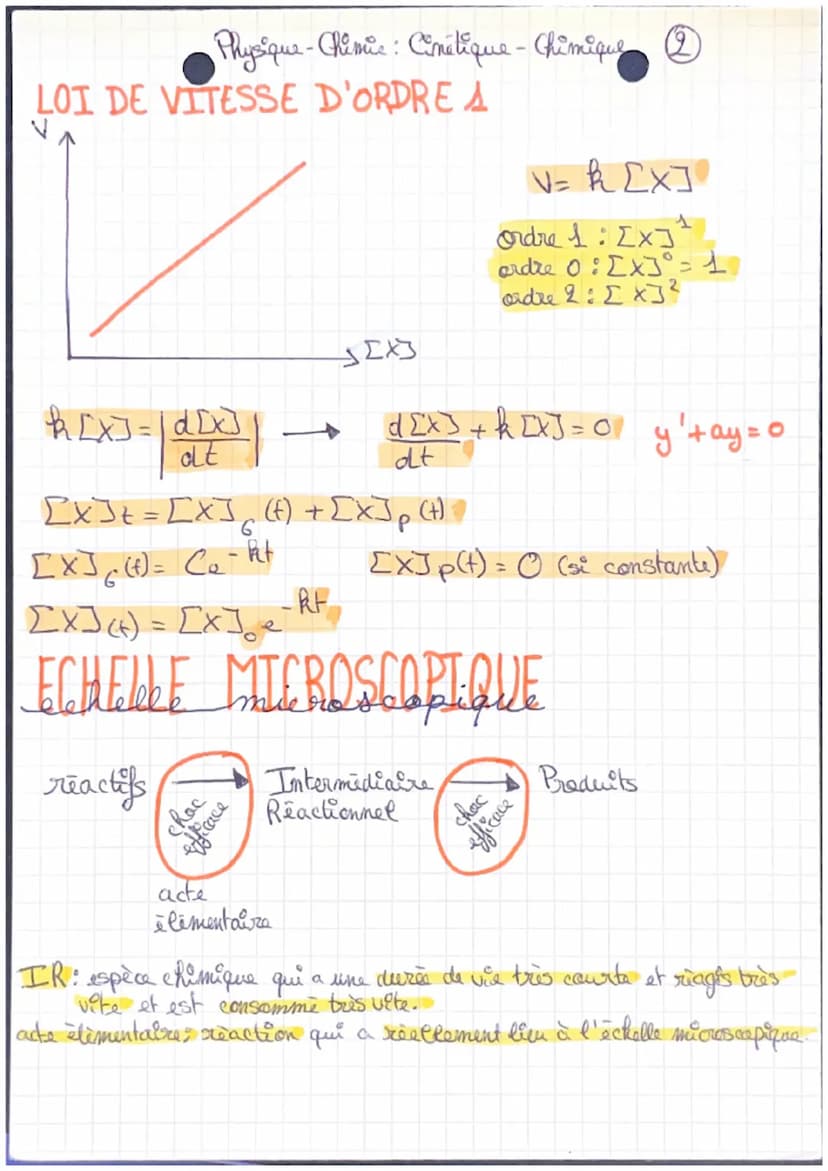 Physique-Chimie : Cinétique-Chimique 2
LOI DE VITESSE D'ORDRE 1
V
V = k [X]
ordre 1 : [X]¹
ordre 0 : [X]⁰ = 1
ordre 2 : [X]²
[X]
k [X] = |d[X]/dt| → d[X]/dt + k [X] = 0 y' + ay = 0
[X]t = [X]G (t) + [X]p (t)
[X]G (t) = Ce^-kt [X]p(t) = 0 (si constante)
[X](t) = [X]₀ e^-kt
ECHELLE MICROSCOPIQUE
echelle microscopique
réactifs → Intermédiaire → Produits
Réactionnel
choc efficace
choc efficace
acte
élémentaire
IR : espèce chimique qui a une durée de vie très courte et réagis très
vite et est consommé très vite.
acte élémentaire : réaction qui a réellement lieu à l'échelle microscopique.